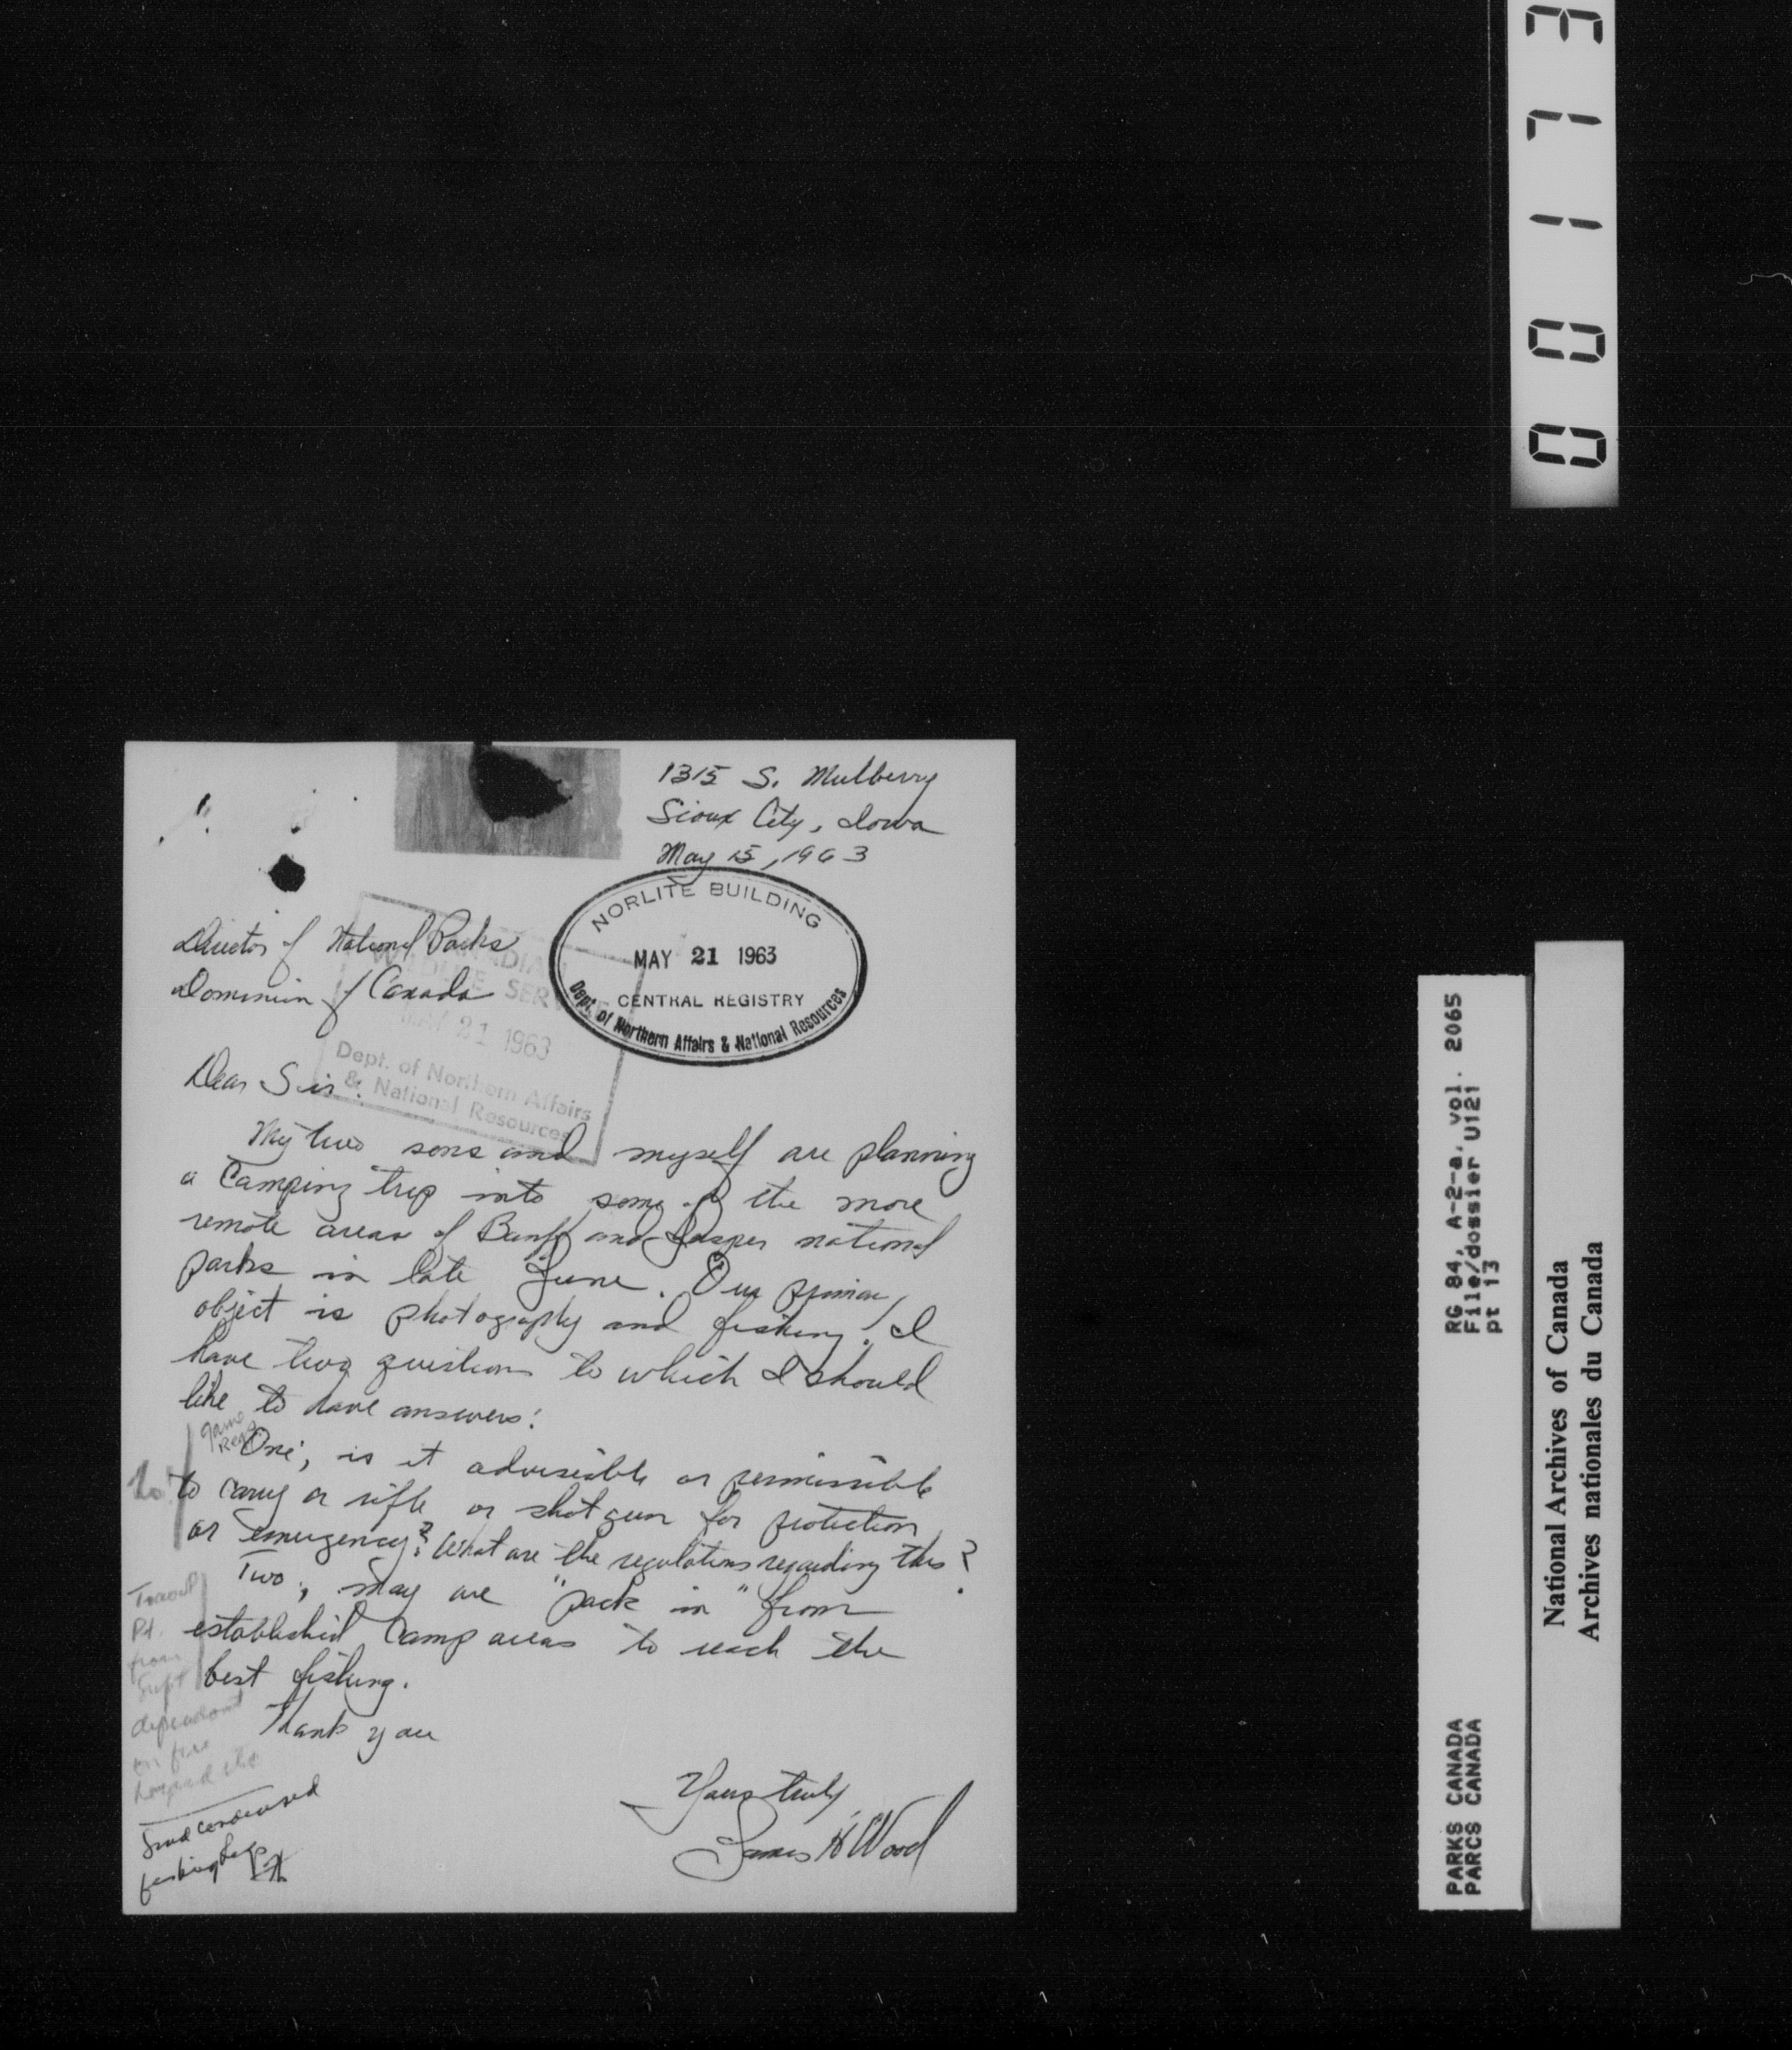 00173
1315 S. Mulberry
Sioux City, Iowa
May 15, 1963
NORLITE BUILDING
MAY 21 1963
CENTRAL REGISTRY
Dept. of Northern Affairs & National Resources
Director of National Parks
Dominion of Canada
CANADIAN
WILDLIFE SERVICE
MAY 21 1963
Dept. of Northern Affairs
& National Resources
Dear Sir:
My two sons and myself are planning
a camping trip into some of the more
remote areas of Banff and Jasper national
parks in late June. Our primary
object is photography and fishing. I
have two questions to which I should
like to have answers:
game
Regs
One, is it adviseable or permissible
to carry a rifle or shotgun for protection
or emergency? What are the regulations regarding this?
No
Two, may we "pack in" from
established camp areas to reach the
best fishing.
Travel
Pt.
from
Supt
dependant
on fire
hazard etc
Thank you
Yours truly
James H Wood
Send condensed
fishing regs
RG 84, A-2-a, vol. 2065
File/dossier U121
pt 13
PARKS CANADA
PARCS CANADA
National Archives of Canada
Archives nationales du Canada